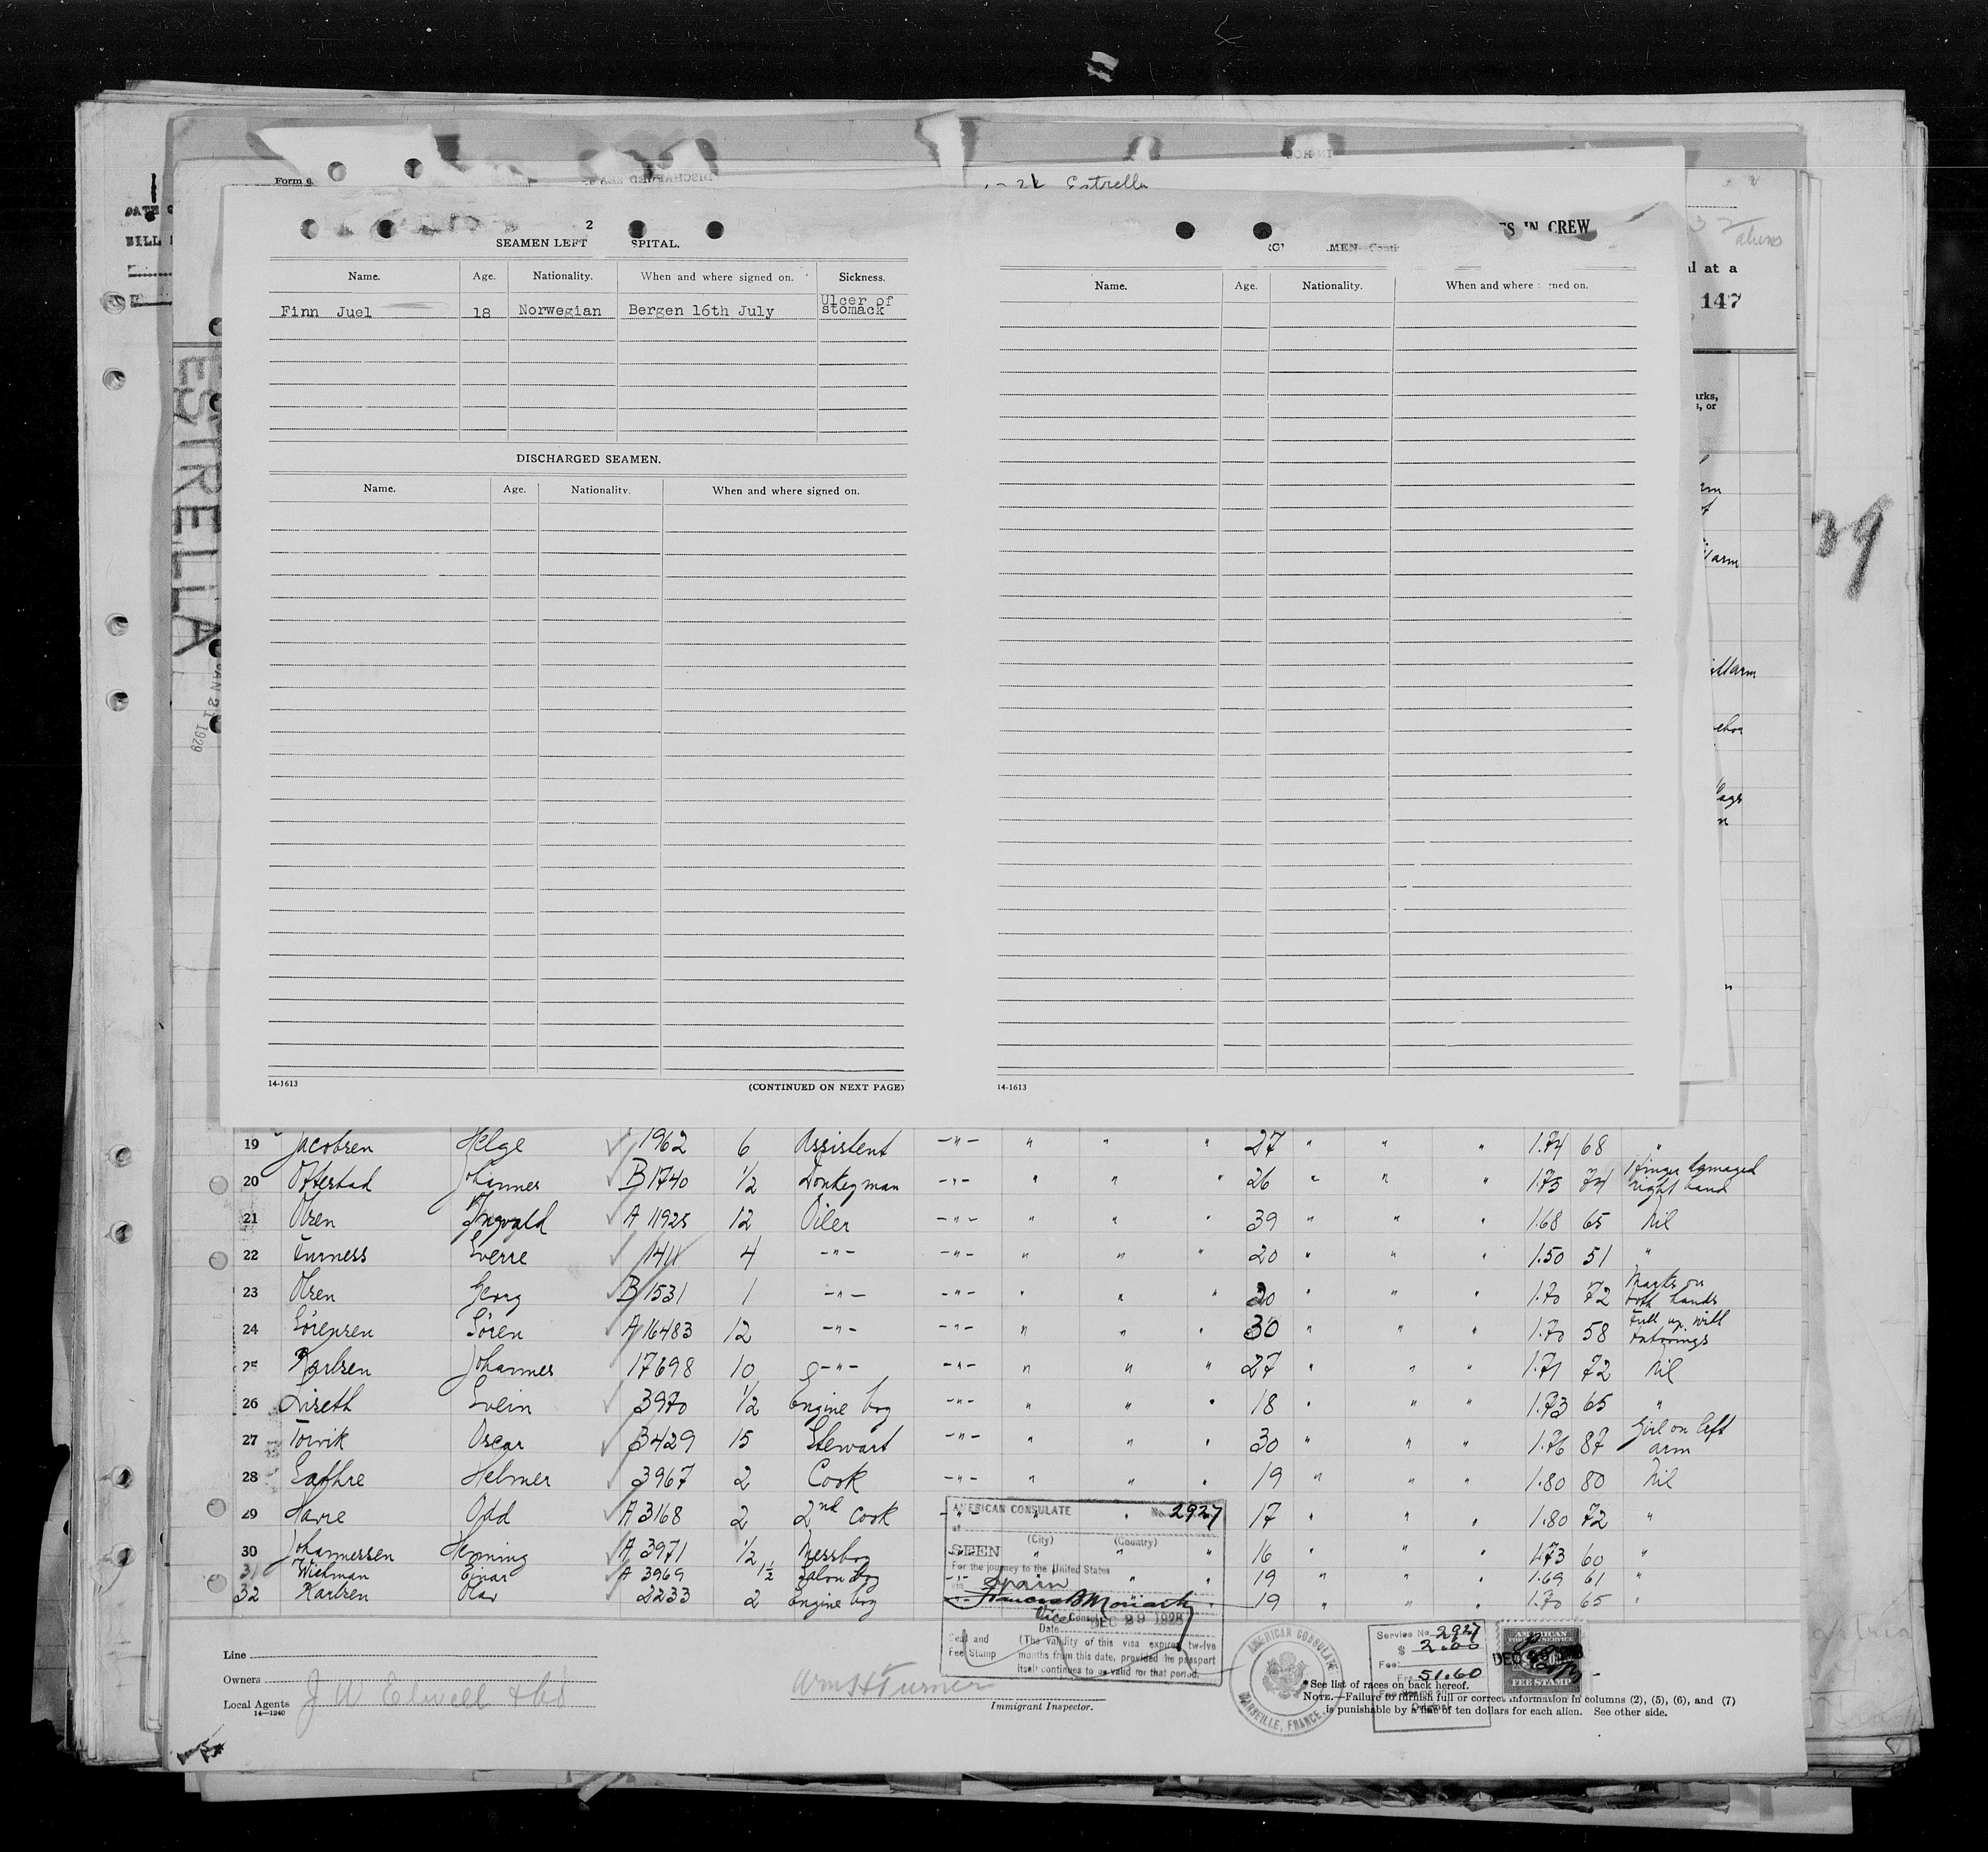 Form 6
Estrella
2
SEAMEN LEFT SPITAL.
Name. Age. Nationality. When and where signed on. Sickness.
Finn Juel 18 Norwegian Bergen 16th July Ulcer of stomack
DISCHARGED SEAMEN.
Name. Age. Nationality. When and where signed on.
14-1613 (CONTINUED ON NEXT PAGE)
IN CREW
MEN
Name. Age. Nationality. When and where signed on.
14-1613
aliens
at a
147
or
arm
ESTRELLA
JAN 21 1929
39
19 Jacobsen Helge 1962 6 Assistent -"- " " " 27 " " " 1.74 68 "
20 Offerstad Johannes B 1740 1/2 Donkeyman -"- " " " 26 " " " 1.73 74 1 finger damaged right hand
21 Olsen Ingvald A 11925 12 Oiler -"- " " " 39 " " " 1.68 65 Nil
22 Furness Sverre 1411 4 -"- -"- " " " 20 " " " 1.50 51 "
23 Olsen Georg B 1531 1 -"- -"- " " " 20 " " " 1.70 72 Marks on both hands
24 Sörensen Sören A 16483 12 -"- -"- " " " 30 " " " 1.70 58 Full up with tatovings
25 Karlsen Johannes 17698 10 -"- -"- " " " 27 " " " 1.71 72 Nil
26 Liseth Svein 3970 1/2 Engine boy -"- " " " 18 " " " 1.73 65 "
27 Torvik Oscar 3429 15 Stewart -"- " " " 30 " " " 1.76 87 Girl on left arm
28 Helmer 3967 2 Cook -"- " " " 19 " " " 1.80 80 Nil
29 Odd A 3168 2 2nd cook -"- " " " 17 " " " 1.80 72 "
30 Johannessen Henning A 3971 1/2 Messboy " " " 16 " " " 1.73 60 "
31 Wichman Einar A 3969 1 1/2 Salon boy " " 19 " " " 1.69 61 "
32 Karlsen Olav 2233 2 Engine boy 19 " " " 1.70 65 "
AMERICAN CONSULATE No. 2927
at
(City) (Country)
SEEN
For the journey to the United States
via Spain
Francis B Moriarty
Vice Consul
Date DEC 29 1928
Seal and Fee Stamp
(The validity of this visa expires twelve
months from this date, provided the passport
itself continues to be valid for that period.
AMERICAN CONSULATE
MARSEILLE, FRANCE
Service No. 2927
$ 2.00
Fee:
Frs. 51.60
AMERICAN
FOREIGN SERVICE
FEE STAMP
Line
Owners
Local Agents J W Elwell & Co
14—1240
Wm H Turner
Immigrant Inspector.
*See list of races on back hereof.
NOTE.—Failure to furnish full or correct information in columns (2), (5), (6), and (7)
is punishable by a fine of ten dollars for each alien. See other side.